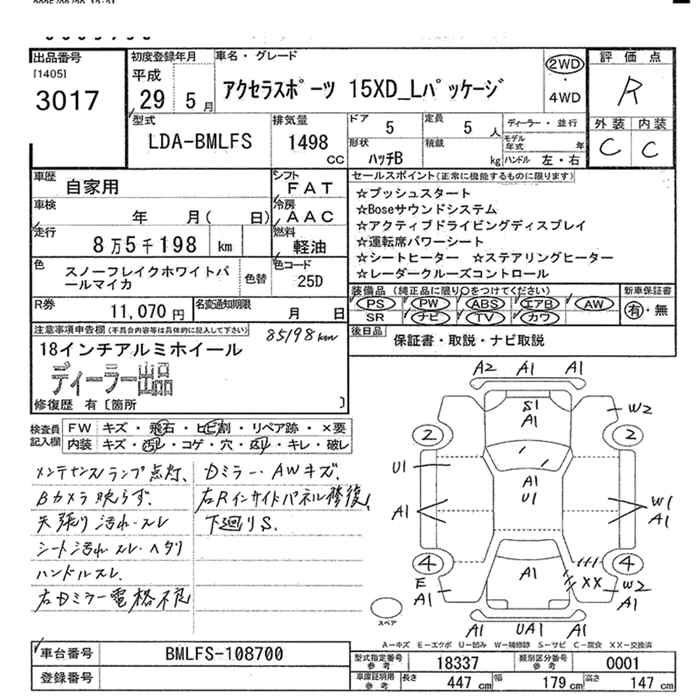 出品番号
[1405]
3017
初度登録年月
平成
29年5月
車名・グレード
アクセラスポーツ 15XD_Lパッケージ
2WD
・
4WD
評価点
R
外装 内装
C C
型式
LDA-BMLFS
排気量
1498
CC
ドア
5
定員
5人
形状
ハッチB
積載
kg
ディーラー・並行
モデル年式 年
ハンドル 左・右
車歴
自家用
車検
年 月( 日)
走行
8万5千198 km
色
スノーフレイクホワイトパールマイカ
色替
シフト
FAT
冷房
AAC
燃料
軽油
色コード
25D
R券
11,070円
名変通知期限
月 日
セールスポイント(正常に機能するものに限ります)
☆プッシュスタート
☆Boseサウンドシステム
☆アクティブドライビングディスプレイ
☆運転席パワーシート
☆シートヒーター ☆ステアリングヒーター
☆レーダークルーズコントロール
装備品(純正品に限り○をつけてください)
PS PW ABS エアB AW
SR ナビ TV カワ
新車保証書
有・無
後日品
保証書・取説・ナビ取説
注意事項申告欄(不具合内容等は具体的に記入して下さい)
85198km
18インチアルミホイール
ディーラー出品
修復歴 有〔箇所 〕
検査員記入欄
FW キズ・飛石・ヒビ割・リペア跡・×要
内装 キズ・汚れ・コゲ・穴・キレ・破レ
メンテナンスランプ点灯、
Bカメラ映らず、
天張り汚れ・スレ
シート汚れ スレ・ヘタリ
ハンドルスレ、
右Dミラー電格不良
Dミラー・AWキズ、
右Rインサイドパネル修復、
下廻りS、
A2 A1 A1
S1
A1
W2
2 2
U1
A1
A1
U1
W1
A1
4 4
E
A1
A1
XX
W2
A1
スペア
A1 UA1 A1
A=キズ E=エクボ U=凹み W=補修跡 S=サビ C=腐食 XX=交換済
車台番号
BMLFS-108700
登録番号
型式指定番号 参考
18337
類別区分番号 参考
0001
車庫証明用 参考
長さ 447cm
幅 179cm
高さ 147cm